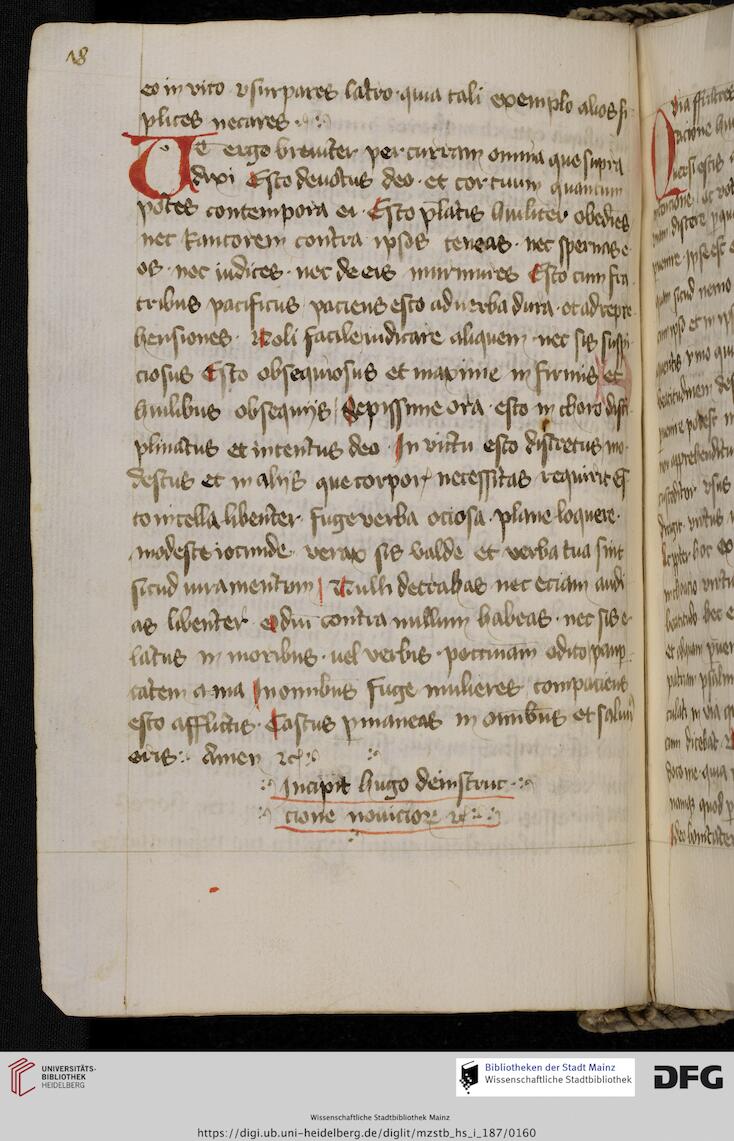 18
eo in vico vsurpares latro · quia tali exemplo alios si
plices necares
Ut ergo breuiter percurram omnia que supra
dixi Esto deuotus deo · et cor tuum quantum
potes contempora ei · Esto platis huiliter obediēs
nec Rancorem contra ipsos teneas · nec spernas e
os · nec iudices · nec de eis murmures Esto cum fra
tribus pacificus paciens esto ad verba dura · et ad repre
hensiones · Noli facile iudicare aliquem · nec sis suspi
ciosus Esto obsequiosus et maxime in firmis et
huilibus obsequijs Sepissime ora · esto in choro disci
plinatus et intentus deo · In victu esto discretus mo
destus et in alijs que corpori necessitas requirit Es
to in cella libenter · fuge verba ociosa · plane loquere ·
modeste iocunde · verax sis valde et verba tua sint
sicud iuramentum Nulli detrahas nec eciam audi
as libenter · odiū contra nullum habeas · nec sis e
latus in moribus · uel verbis · pecuniam odito paup
tatem ama In omnibus fuge mulieres compaciens
esto afflictis · Castus pmaneas in omnibus et saluus
eris · Amen rc
Incipit hugo de instruc
cione nouicior rc
UNIVERSITÄTS-
BIBLIOTHEK
HEIDELBERG
Bibliotheken der Stadt Mainz
Wissenschaftliche Stadtbibliothek
DFG
Wissenschaftliche Stadtbibliothek Mainz
https://digi.ub.uni-heidelberg.de/diglit/mzstb_hs_i_187/0160